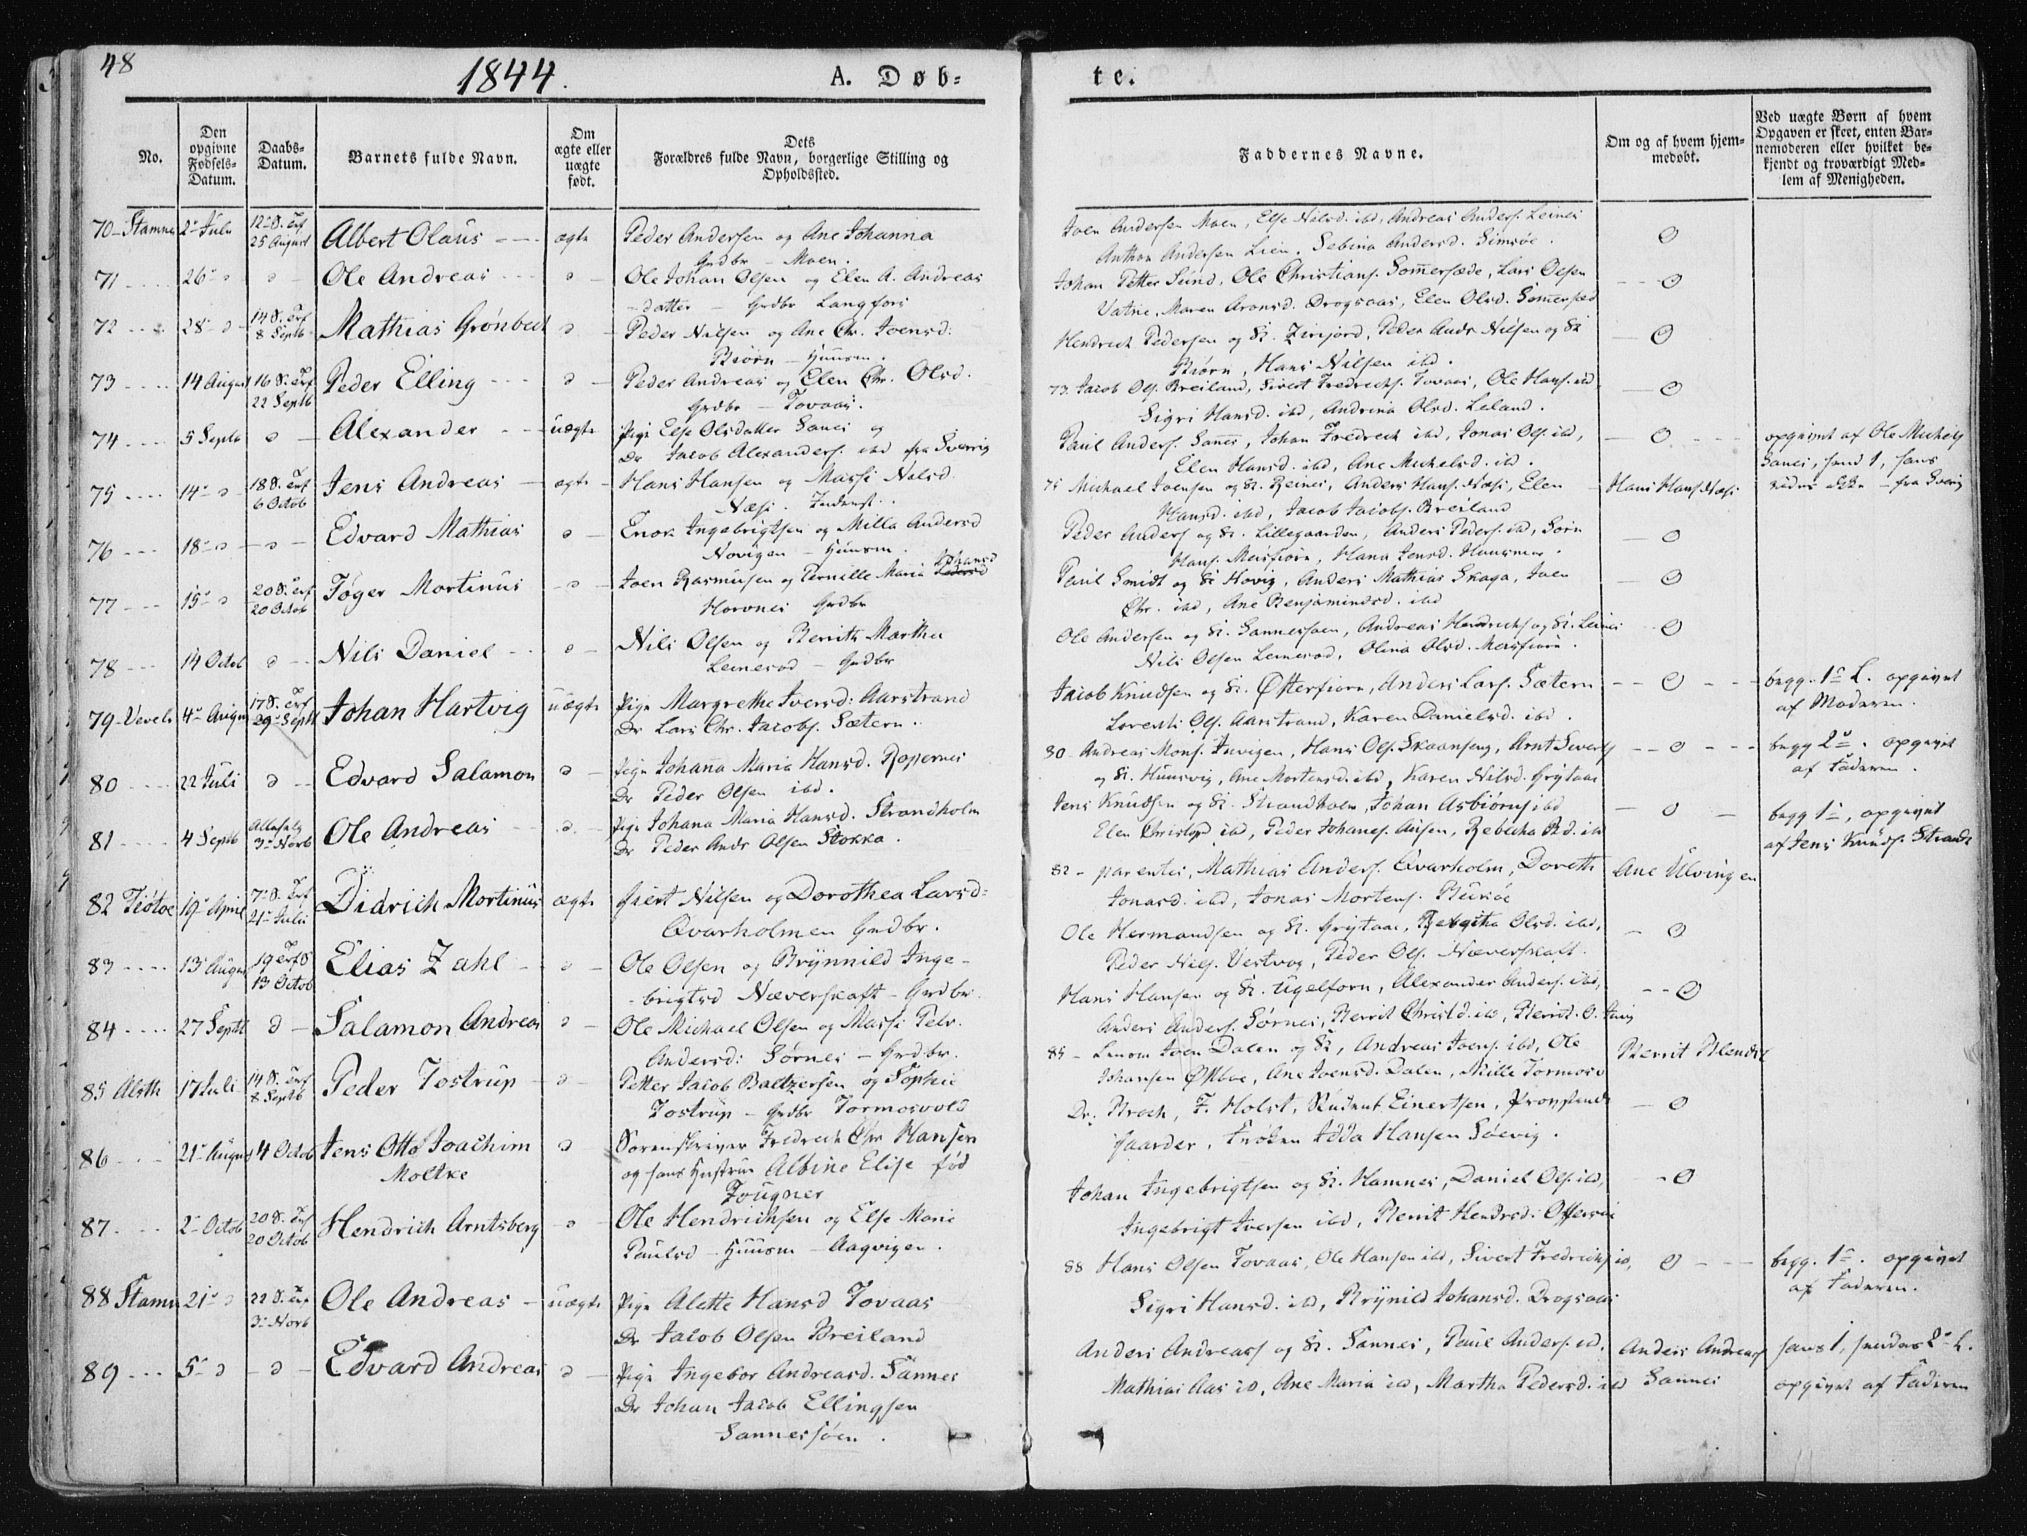 48
1844.
A. Døb=
te.
No.
Den opgivne Fødsels-Datum.
Daabs-Datum.
Barnets fulde Navn.
Om ægte eller uægte født.
Dets Forældres fulde Navn, borgerlige Stilling og Opholdssted.
Faddernes Navne.
Om og af hvem hjemmedøbt.
Ved uægte Børn af hvem Opgaven er skeet, enten Barnemoderen eller hvilket bekjendt og troværdigt Medlem af Menigheden.
70 - Stamnes 2 Juli 25 August Albert Olaus ægte Peder Andersen og Ane Johanna
Grdbr - Moen.
Joen Andersen Moen, Else Nilsd. ibd, Andreas Anders. Leines
Anthon Andersen Lien, Sebina Andersd. Simsøe. 0
71 26 Ole Andreas Ole Johan Olsen og Elen A. Andreas
-datter - Grdbr Langfors
Johan Petter Sund, Ole Christians. Sommersæde, Lars Olsen
Vatne, Maren Aronsd. Drogsaas, Elen Olsd. Sommersæd 0
72 28 8 Septb Mathias Grønbech Peder Nilsen og Ane Chr. Joensd.
Biørn - Huusm.
Hendrich Pedersen og K. Zirijord, Peder Andr Nilsen og K
Biørn, Hans Nilsen ibd. 0
73 14 August 16 S. Trf 22 Septb Peder Elling Peder Andreas og Elen Chr. Olsd.
Grdbr - Tovaas.
73. Jacob Ols. Breiland, Sivert Fredrichs. Tovaas, Ole Hans. ibd,
Sigri Hansd. ibd, Andrina Olsd. Leland. 0
74 5 Septb Alexander uægte Pige Else Olsdatter Sanes og
Dr Jacob Alexanders. ibd fra Sverrig
Paul Anders. Sanes, Johan Fredrech ibd, Jonas Ols. ibd,
Elen Hansd. ibd, Ane Michelsd. ibd. 0
opgivet af Ole Michels
Sanes, hend 1, hans
vides ikke - fra Sverig
75 14 18 S. Trf 6 Octob Jens Andreas ægte Hans Hansen og Massi Nilsd.
Næsi.
75 Michael Joensen og K. Reines, Anders Hans. Næsi, Elen
Hansd. ibd, Jacob Jacobs. Breiland
Hans Hans. Næsi
76 18 Edvard Mathias Enok Ingebrigtsen og Milla Andersd
Novigen - Huusm.
Peder Anders og K. Lillegaarden, Anders Peders. ibd, Sørn
Hans. Meisfiorn, Hana Jensd. Hausmoe. 0
77 15 20 S. Trf 20 Octob Tøger Mortinus Joen Rasmussen og Pernille Maria Johansd
Hovnes Grdbr
Paul Smidt og K Hovig, Anders Mathias Skaga, Joen
Chr. ibd, Ane Benjaminsd. ibd 0
78 14 Octob Nils Daniel Nils Olsen og Berrith Martha
Leinesod - Grdbr
Ole Andersen og K. Sannessøen, Andreas Hendrichs og K. Leines
Nils Olsen Leinesod, Olina Olsd. Meisfiorn. 0
79 - Vevels 4 August 17 S. Trf 29 Septb Johan Hartvig uægte Pige Margrethe Iversd: Aarstrand
Dr Lars Chr. Jacobs. Sætern.
Jacob Knudsen og K. Østerfiorn, Anders Lars. Sætern
Lorents Ols. Aarstrand, Karen Danielsd. ibd. 0
begg. 1 L. opgivet
af Moderen.
80 22 Juli Edvard Salamon Pige Johana Maria Hansd. Ropernes
Dr Peder Olsen ibd.
80 - Andreas Mons. Invigen, Hans Ols. Skaanseng, Arnt Siverts
og K. Huusvig, Ane Mortensd. ibd, Karen Nilsd. Grytaae 0
begg 2. opgivet
af Faderen.
81 4 Septb 3 Novb Ole Andreas Pige Johana Maria Hansd. Strandholm
Dr Peder Andr Olsen Stokka.
Jens Knudsen og K. Strandholm, Johan Asbiørns. ibd
Elen Christopd ibd, Peder Johanes. Ausen, Rebecha Pd. ibd 0
begg 1, opgivet
af Jens Knuds. Strandh
82 Tiøtøe 19 April 7 S. Trf 21 Juli Didrich Mortinus ægte Giert Nilsen og Dorothea Larsd=
Qvarholmen Grdbr.
82 - parentes, Mathias Anders. Qvarholm, Doreth
Jonasd. ibd, Jonas Mortens. Buesøe
Ane Ulvingen
83 13 August 19 Trf S 13 Octob Elias Zahl Ole Olsen og Brynnild Inge-
-brigtsd Næverskaft - Grdbr.
Ole Hermandsen og K. Grytaae, Rebecha Olsd. ibd,
Peder Nils. Vestvog, Peder Ols. Næverskaft. 0
84 27 Septb Salamon Andreas Ole Michael Olsen og Massi Pelr.
Andersd: Sørnes - Grdbr.
Hans Hansen og K. Ugelforn, Alexander Anders. ibd,
Anders Anders. Sørnes, Berrit Christd. ibd, Berrit O. 0
85 Alsth 17 Juli 14 S. Trf 8 Septb Peder Tostrup Petter Jacob Baltzersen og Sophie
Tostrup - Grdbr Tormosvold
85 - Joen Dalen og K, Andreas Joens. ibd, Ole
Johansen Østbøe, Ane Joensd. Dalen, Mille Tormosv
Berrit
86 21 August 4 Octob Jens Otto Joachim
Moltke
Sorenskriver Fredrech Chr Hansen
og hans Hustrue Albine Elise fød
Fougner
Dr. Broch, F. Holst, Einertsen,
Frøken Idda Hansen Søevig. 0
87 2 Octob 20 S. Trf 20 Octob Hendrich Arntsberg Ole Hendrichsen og Else Marie
Paulsd - Huusm - Aagvigen.
Johan Ingebrigtsen og K. Hamnes, Daniel Ols. ibd,
Ingebrigt Iversen ibd, Berrit Hendrsd: Offersøe 0
88 Stamn 21 22 S. Trf 3 Novb Ole Andreas uægte Pige Alette Hansd Tovaas
Dr Jacob Olsen Breiland
88 Hans Olsen Tovaas, Ole Hansen ibd, Sivert Fredrichs. ibd,
Sigri Hansd. ibd, Brynild Johansd. Drogsaas 0
begg. 1. opgivet
af Faderen.
89 5 Edvard Andreas Pige Ingebor Andreasd. Sannes
Dr Johan Jacob Ellingsen
Sannessøen.
Anders Andreass og K. Sannes, Paul Anders. ibd,
Mathias Aas ibd, Ane Maria ibd, Martha Pedersd. ibd
Anders Andreass
Sannes
hans 1, hendes 2 L.
opgivet af Faderen